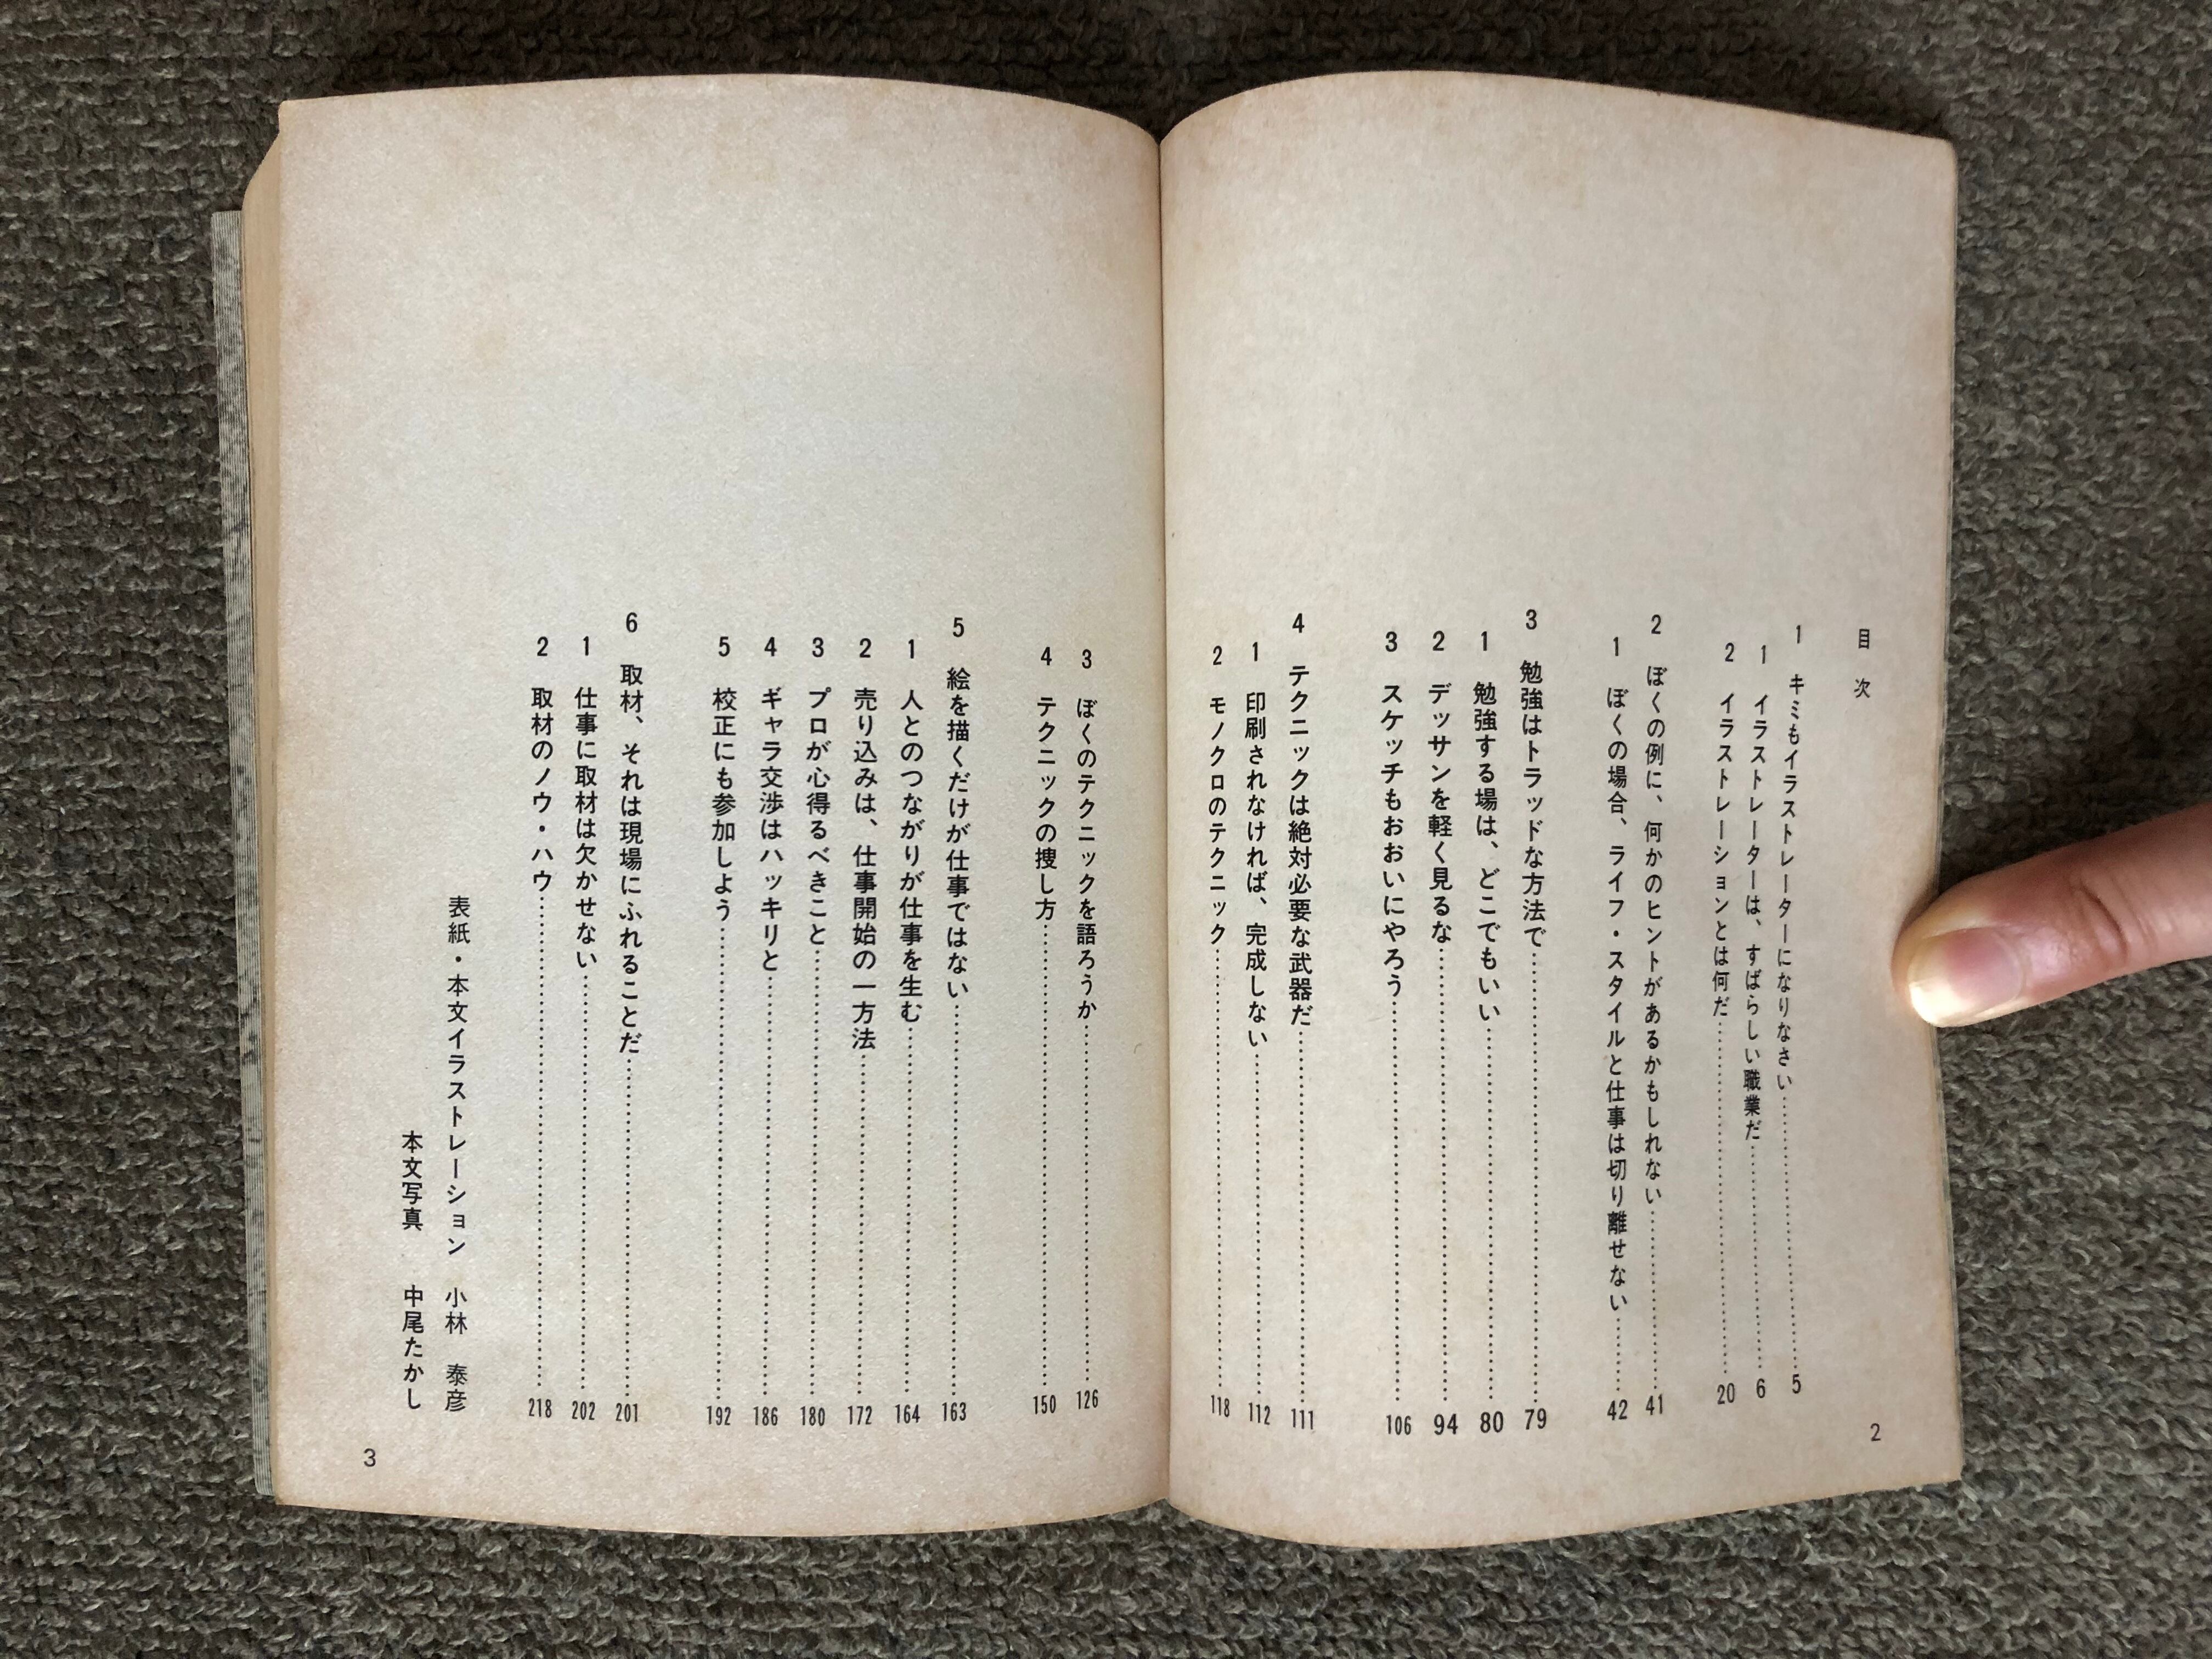 目次
1 キミもイラストレーターになりなさい……………5
1 イラストレーターは、すばらしい職業だ……………6
2 イラストレーションとは何だ……………20
2 ぼくの例に、何かのヒントがあるかもしれない……………41
1 ぼくの場合、ライフ・スタイルと仕事は切り離せない……………42
3 勉強はトラッドな方法で……………79
1 勉強する場は、どこでもいい……………80
2 デッサンを軽く見るな……………94
3 スケッチもおおいにやろう……………106
4 テクニックは絶対必要な武器だ……………111
1 印刷されなければ、完成しない……………112
2 モノクロのテクニック……………118
2
3 ぼくのテクニックを語ろうか……………126
4 テクニックの捜し方……………150
5 絵を描くだけが仕事ではない……………163
1 人とのつながりが仕事を生む……………164
2 売り込みは、仕事開始の一方法……………172
3 プロが心得るべきこと……………180
4 ギャラ交渉はハッキリと……………186
5 校正にも参加しよう……………192
6 取材、それは現場にふれることだ……………201
1 仕事に取材は欠かせない……………202
2 取材のノウ・ハウ……………218
表紙・本文イラストレーション 小林 泰彦
本文写真 中尾たかし
3